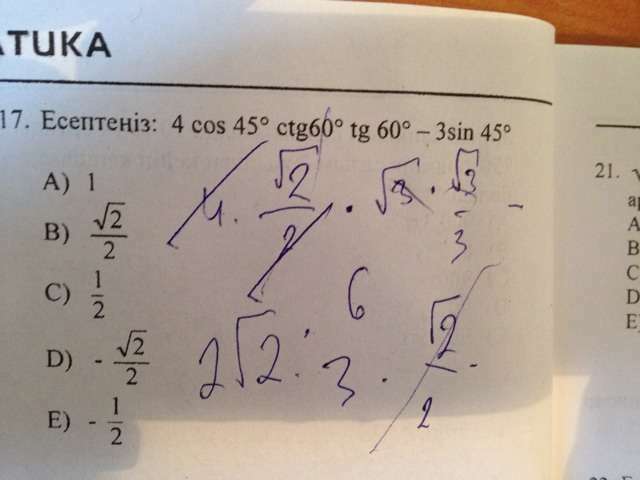 АТИКА
17. Есептеніз: 4 cos 45° ctg60° tg 60° – 3sin 45°
A) 1
B) √2/2
C) 1/2
D) - √2/2
E) - 1/2
4 · √2/2 · √3 · √3/3 –
6
2√2 · 3 · √2/2
21.
A
B
C
D
E)